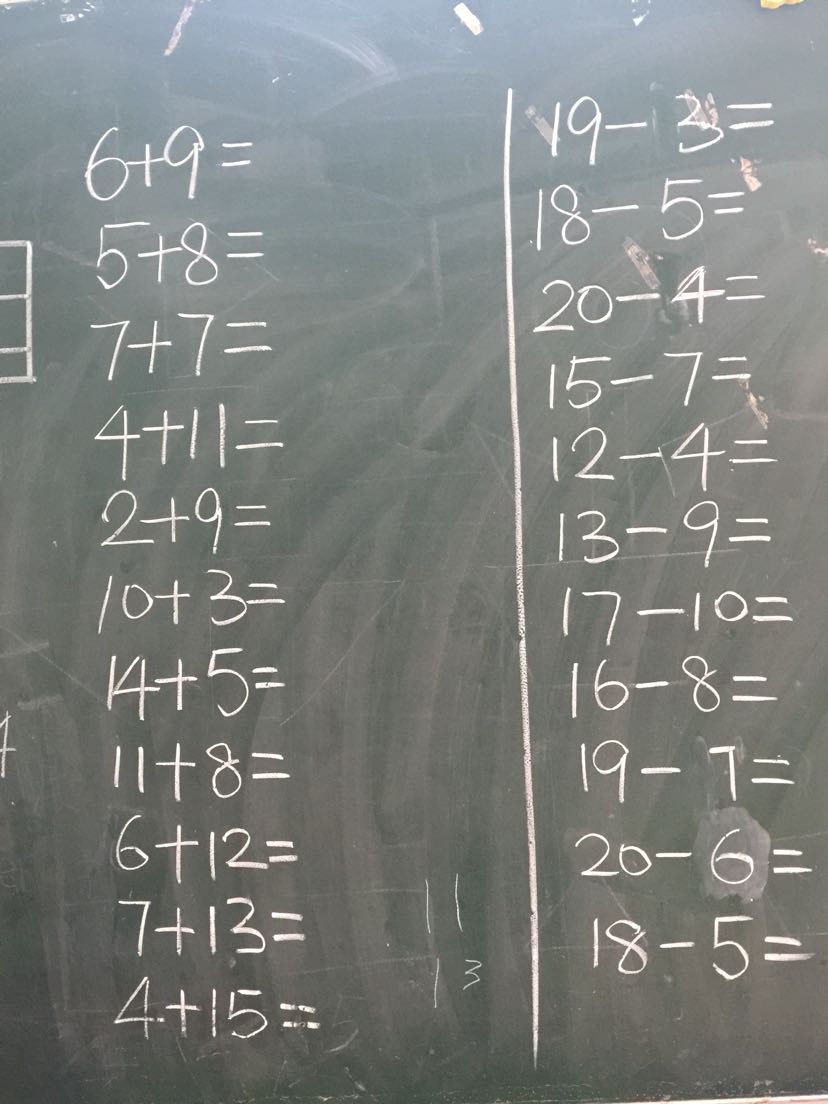 6+9=
5+8=
7+7=
4+11=
2+9=
10+3=
14+5=
11+8=
6+12=
7+13=
4+15=
11
13
19-3=
18-5=
20-4=
15-7=
12-4=
13-9=
17-10=
16-8=
19-7=
20-6=
18-5=